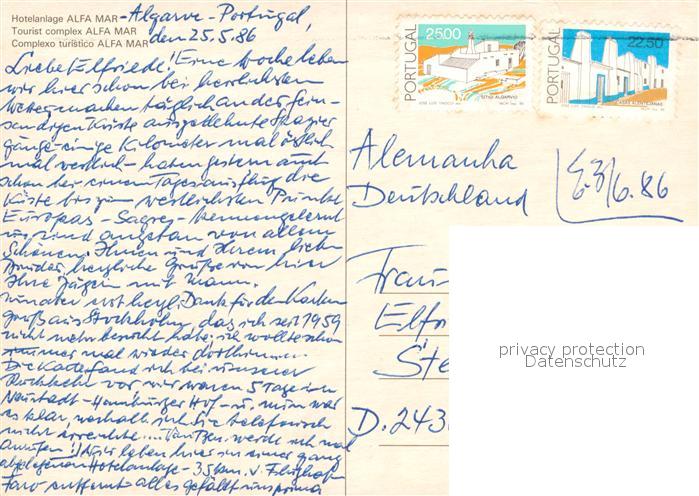 Hotelanlage ALFA MAR - Algarve - Portugal,
Tourist complex ALFA MAR den 25.5.86
Complexo turístico ALFA MAR
Liebe Elfriede! Eine Woche leben
wir hier schon bei herrlichsten
Wetter, machen täglich an der fein-
sandigen Küste ausgedehnte Spazier
gänge - einige Kilometer mal östlich
mal westlich - haben gestern auch
schon hier einen Tagesausflug die
Küste bis zum westlichsten Punkt
Europas - Sagres - kennengelernt
u. sind angetan von allem
Schönen. Ihnen und Ihrem lieben
Bruder herzliche Grüße von hier
Ihre mit Mann.
Dank für den Karten
gruß aus Stockholm, das ich seit 1959
nicht mehr besucht habe; ich wollte schon
immer mal wieder dorthin
Die Karte fand ich bei unserer
Rückkehr vor, wir waren 5 Tage in
Neustadt - Hamburger Hof - u. nun war
es klar, weshalb ich Sie telefonisch
nicht erreichte.... werde ich mal
anrufen! Wir leben hier in einer ganz
abgelegenen Hotelanlage - 35 km v. Flughafen
Faro entfernt - alles gefällt uns prima
PORTUGAL 25.00
SITIO ALGARVIO
PORTUGAL 22.50
CASAS ALENTEJANAS
Alemanha
Deutschland
/6.86
Frau
Elfri
Ste
D. 243
privacy protection
Datenschutz